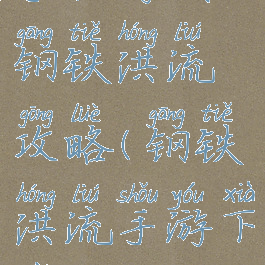 gāng tiě hóng liú
钢铁洪流
gōng lüè gāng tiě
攻略(钢铁
hóng liú shǒu yóu xià
洪流手游下